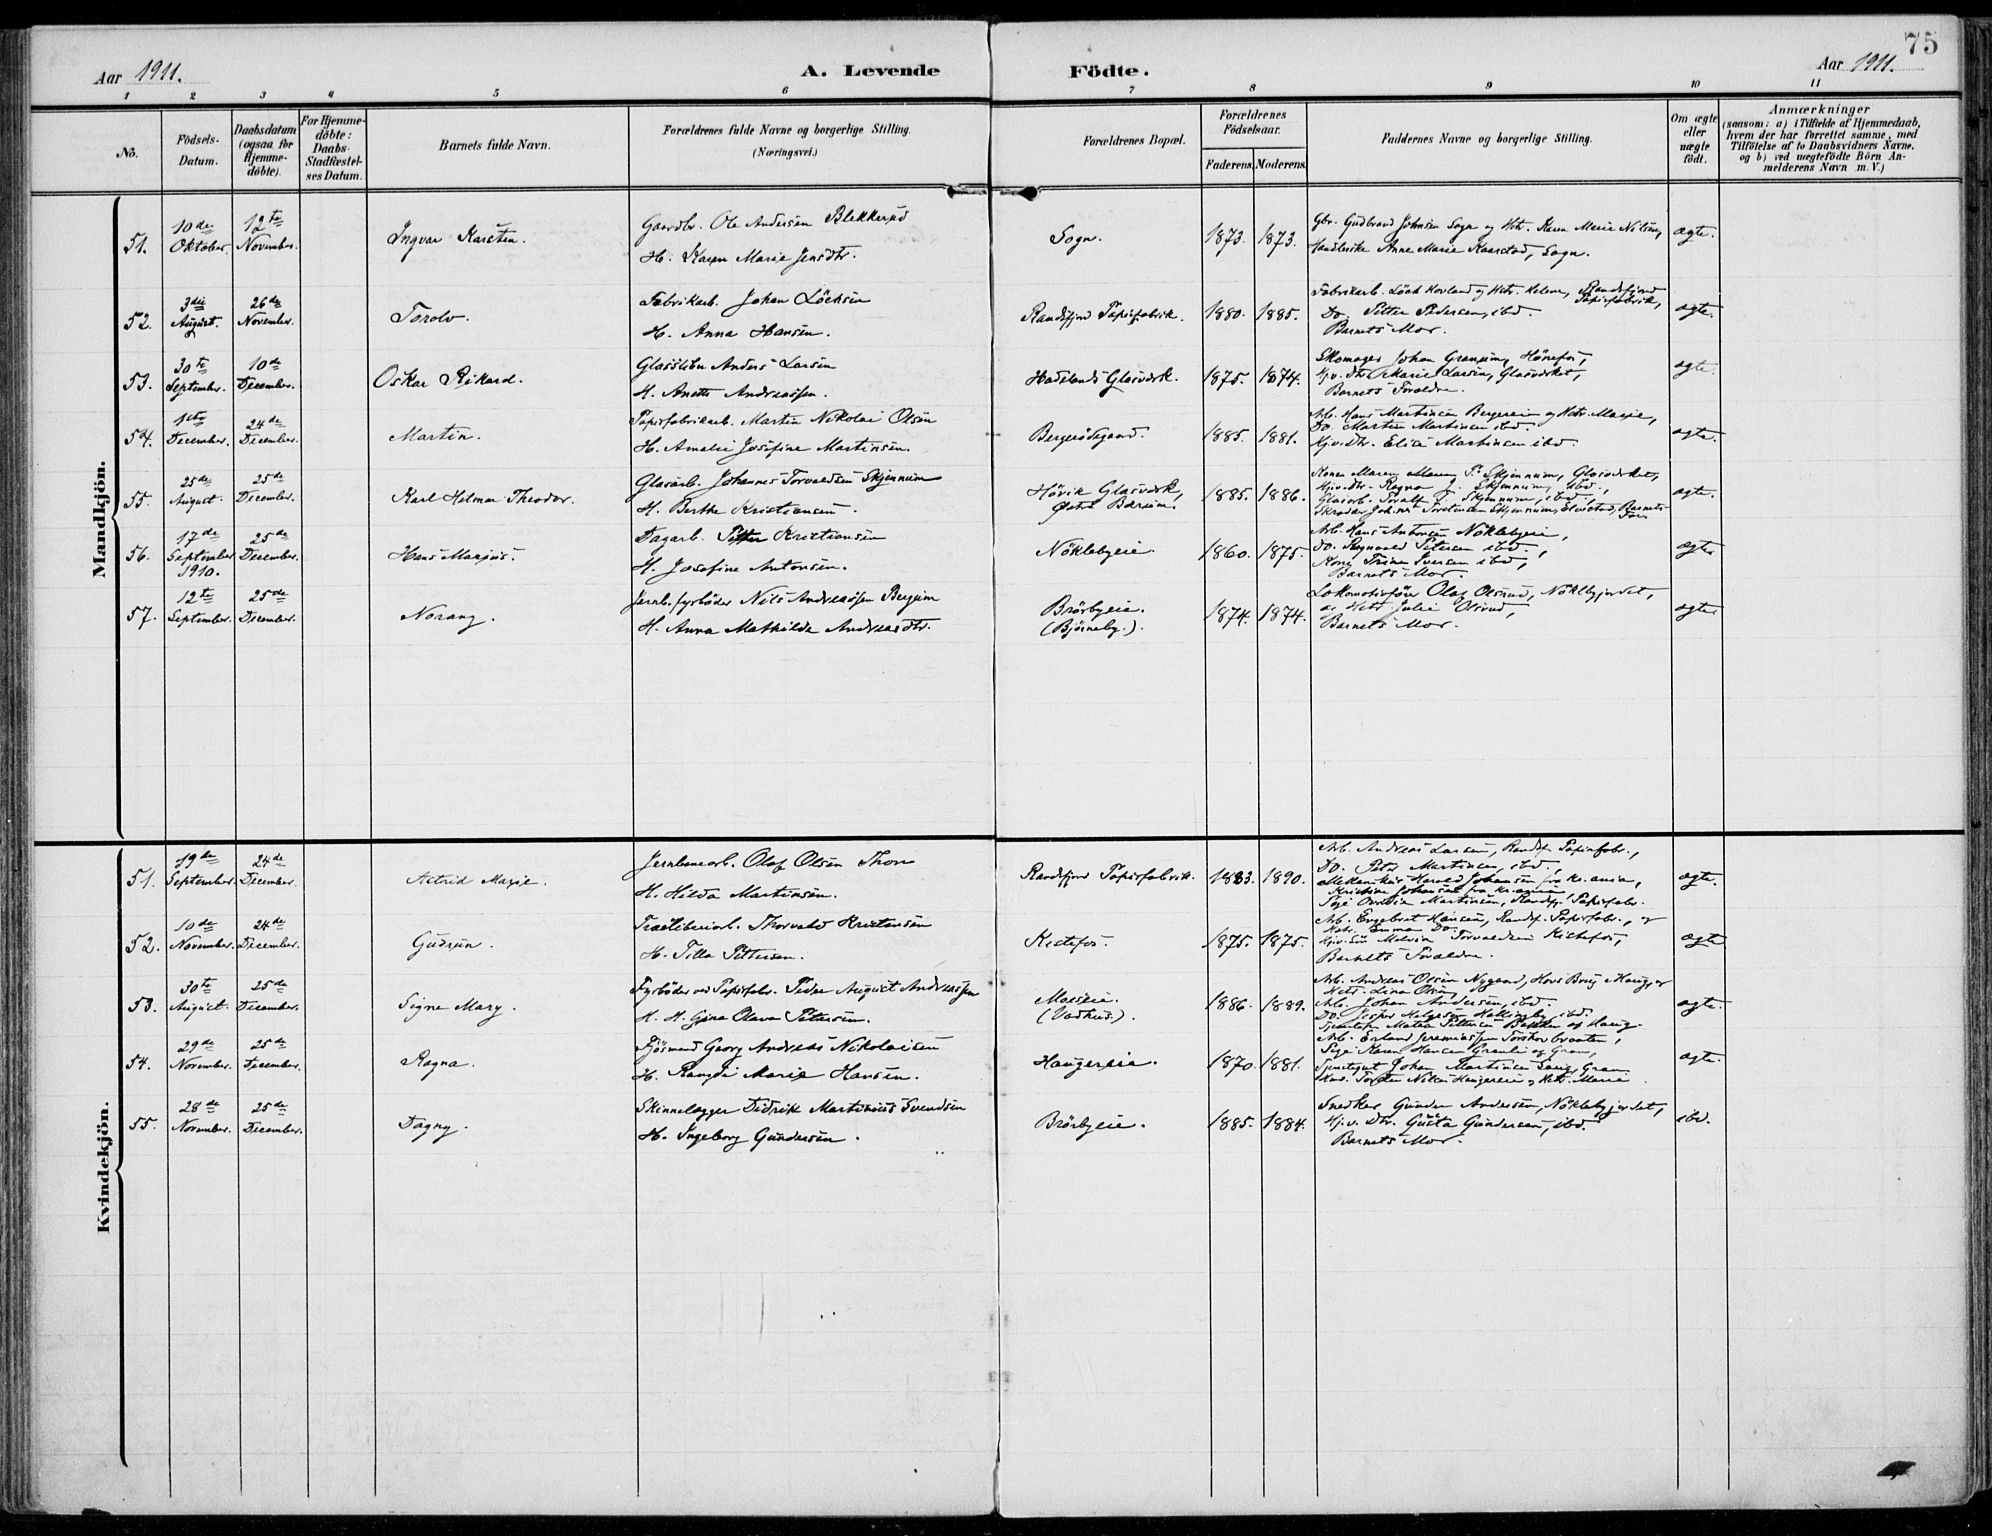 75
Aar 1911.
A. Levende
Födte.
Aar 1911.
1 2 3 4 5 6 7 8 9 10 11
No.
Födsels-Datum.
Daabsdatum (ogsaa for Hjemme-döbte).
For Hjemme-döbte: Daabs-Stadfæstel-ses Datum.
Barnets fulde Navn.
Forældrenes fulde Navne og borgerlige Stilling.
(Næringsvei.)
Forældrenes Bopæl.
Forældrenes Födselsaar.
Faderens. Moderens.
Faddernes Navne og borgerlige Stilling.
Om ægte eller uægte födt.
Anmærkninger
(saasom: a) i Tilfælde af Hjemmedaab, hvem der har forrettet samme, med Tilföielse af to Daabsvidners Navne. og b) ved uægtefödte Börn An-melderens Navn m. V.)
Mandkjön.
51. 10de Oktober. 12te November. Ingvar Karsten. Gaardbr. Ole Andersen Blekkerud
H. Karen Marie Jensdtr. Sogn. 1873. 1873. Gbr. Gudbrand Johnsen Sogn og Hstr. Karen Marie Nilsen,
Anne Marie Kaarstad, Sogn. ægte.
52. 3die August. 26de November. Torolv. Fabrikarb. Johan Löchsen
H. Anna Hansen. Randsfjord Papirfabrik. 1880. 1885. Fabrikarb. Löch Hovland og Hstr. Helene, Randsfjord Papirfabrik,
Do. Petter Pedersen, ibd.
Barnets Mor. ægte.
53. 30te September. 10de December. Oskar Rikard. Glassliber Anders Larsen
H. Anette Andreassen. Hadelands Glasværk. 1875. 1874. Skomager Johan Granum, Hönefos,
Pjv. Dtr. Marie Larsen, Glasværket,
Barnets Forældre. ægte.
54. 1ste December. 24de December. Martin. Papirfabrikarb. Martin Nikolai Olsen
H. Amalie Josefine Martinsen. Bergerödegaard. 1885. 1881. Arb. Hans Martinsen Bergereie og Hstr. Marie,
Do. Martin Martinsen ibd.
Pjv. Dtr. Elise Martinsen ibd. ægte.
55. 25de August. 25de December. Karl Helmer Theodor. Glasarb. Johannes Torvaldsen Skjennum
H. Berthe Kristiansen. Hövik Glasværk,
Östre Bærum. 1885. 1886. Kone Maren T. Skjennum, Glasværket,
Pjv. Dtr. Ragna J. Skjennum, ibd.,
Glasarb. T. Skjennum, ibd.
Skræder Johannes Torstensen Skjennum, Barnets Far. ægte.
56. 17de September 1910. 25de December. Hans Marius. Dagarb. Petter Kristiansen
H. Josefine Antonsen. Nöklebyeie. 1860. 1875. Arb. Hans Antonsen Nöklebyeie,
Do. Ragnvald Petersen ibd.,
Kone Trine Iversen ibd.,
Barnets Mor. ægte
57. 12te September. 25de December. Norang. Jernb. fyrböder Nils Andreassen Bergum
H. Anna Mathilde Andreasdtr. Brörbyeie.
(Björneby.). 1874. 1874. Lokomotivförer Olaf Olsrud, Nöklebyjordet,
og Hstr. Julie Olsrud,
Barnets Mor. ægte
Kvindekjön.
51. 19de September. 24de December. Astrid Marie. Jernbanearb. Olaf Olsen Thon
H. Hilda Martinsen. Randsfjord Papirfabrik. 1883. 1890. Arb. Andreas Larsen, Randsf. Papirfabr.,
Do. Peter Martinsen, ibd.,
Mekanikus Harald Johansen fra Kr.ania,
Kristine Johansen fra Kr.ania,
Pige Martinsen, Randsf. Papirfabr. ægte.
52. 10de November. 24de December. Gudrun. Træsliberiarb. Thorvald Kristensen
H. Tilla Pettersen. Kistefos. 1875. 1875. Arb. Engebret Hansen, Randsf. Papirfabr., og
Hstr. Emma Do.
Pjv. Sön Melvin Torvaldsen Kistefos,
Barnets Forældre. ægte
53. 30te August. 25de December. Signe Mary. Fyrböder ved Papirfabr. Peder August Andreassen
H. H. Gina Olava Pettersen. Moseie.
(Vadhus.). 1886. 1889. Arb. Andreas Olsen Nygaard, Hovs Brug Haug, og
Hstr. Lina Olsen,
Arb. Johan Andersen, ibd.
Do. Jesper Helgesen Hallingby, ibd.
Tjenestepike Matea Pettersen Bakken af Haug. ægte.
54. 29de November. 25de December. Ragna. Fjösmand Georg Andreas Nikolaisen
H. Randi Marie Hansen. Haugereie. 1870. 1881. Arb. Erland Jeremiassen Torskorbraaten,
Pige Karen Hansen Granli og Gran,
Tjenstgut Johan Martinsen Gran,
Husm. Torsten Nilsen Haugereie og Hstr. Marie. ægte.
55. 28de November. 25de December. Dagny. Skinnelægger Didrik Martinius Svendsen
H. Ingeborg Gundersen. Brörbyeie. 1885. 1884. Snedker Gunder Andersen, Nöklebyjordet,
Pjv. Dtr. Gusta Gundersen, ibd.
Barnets Mor. ibd.